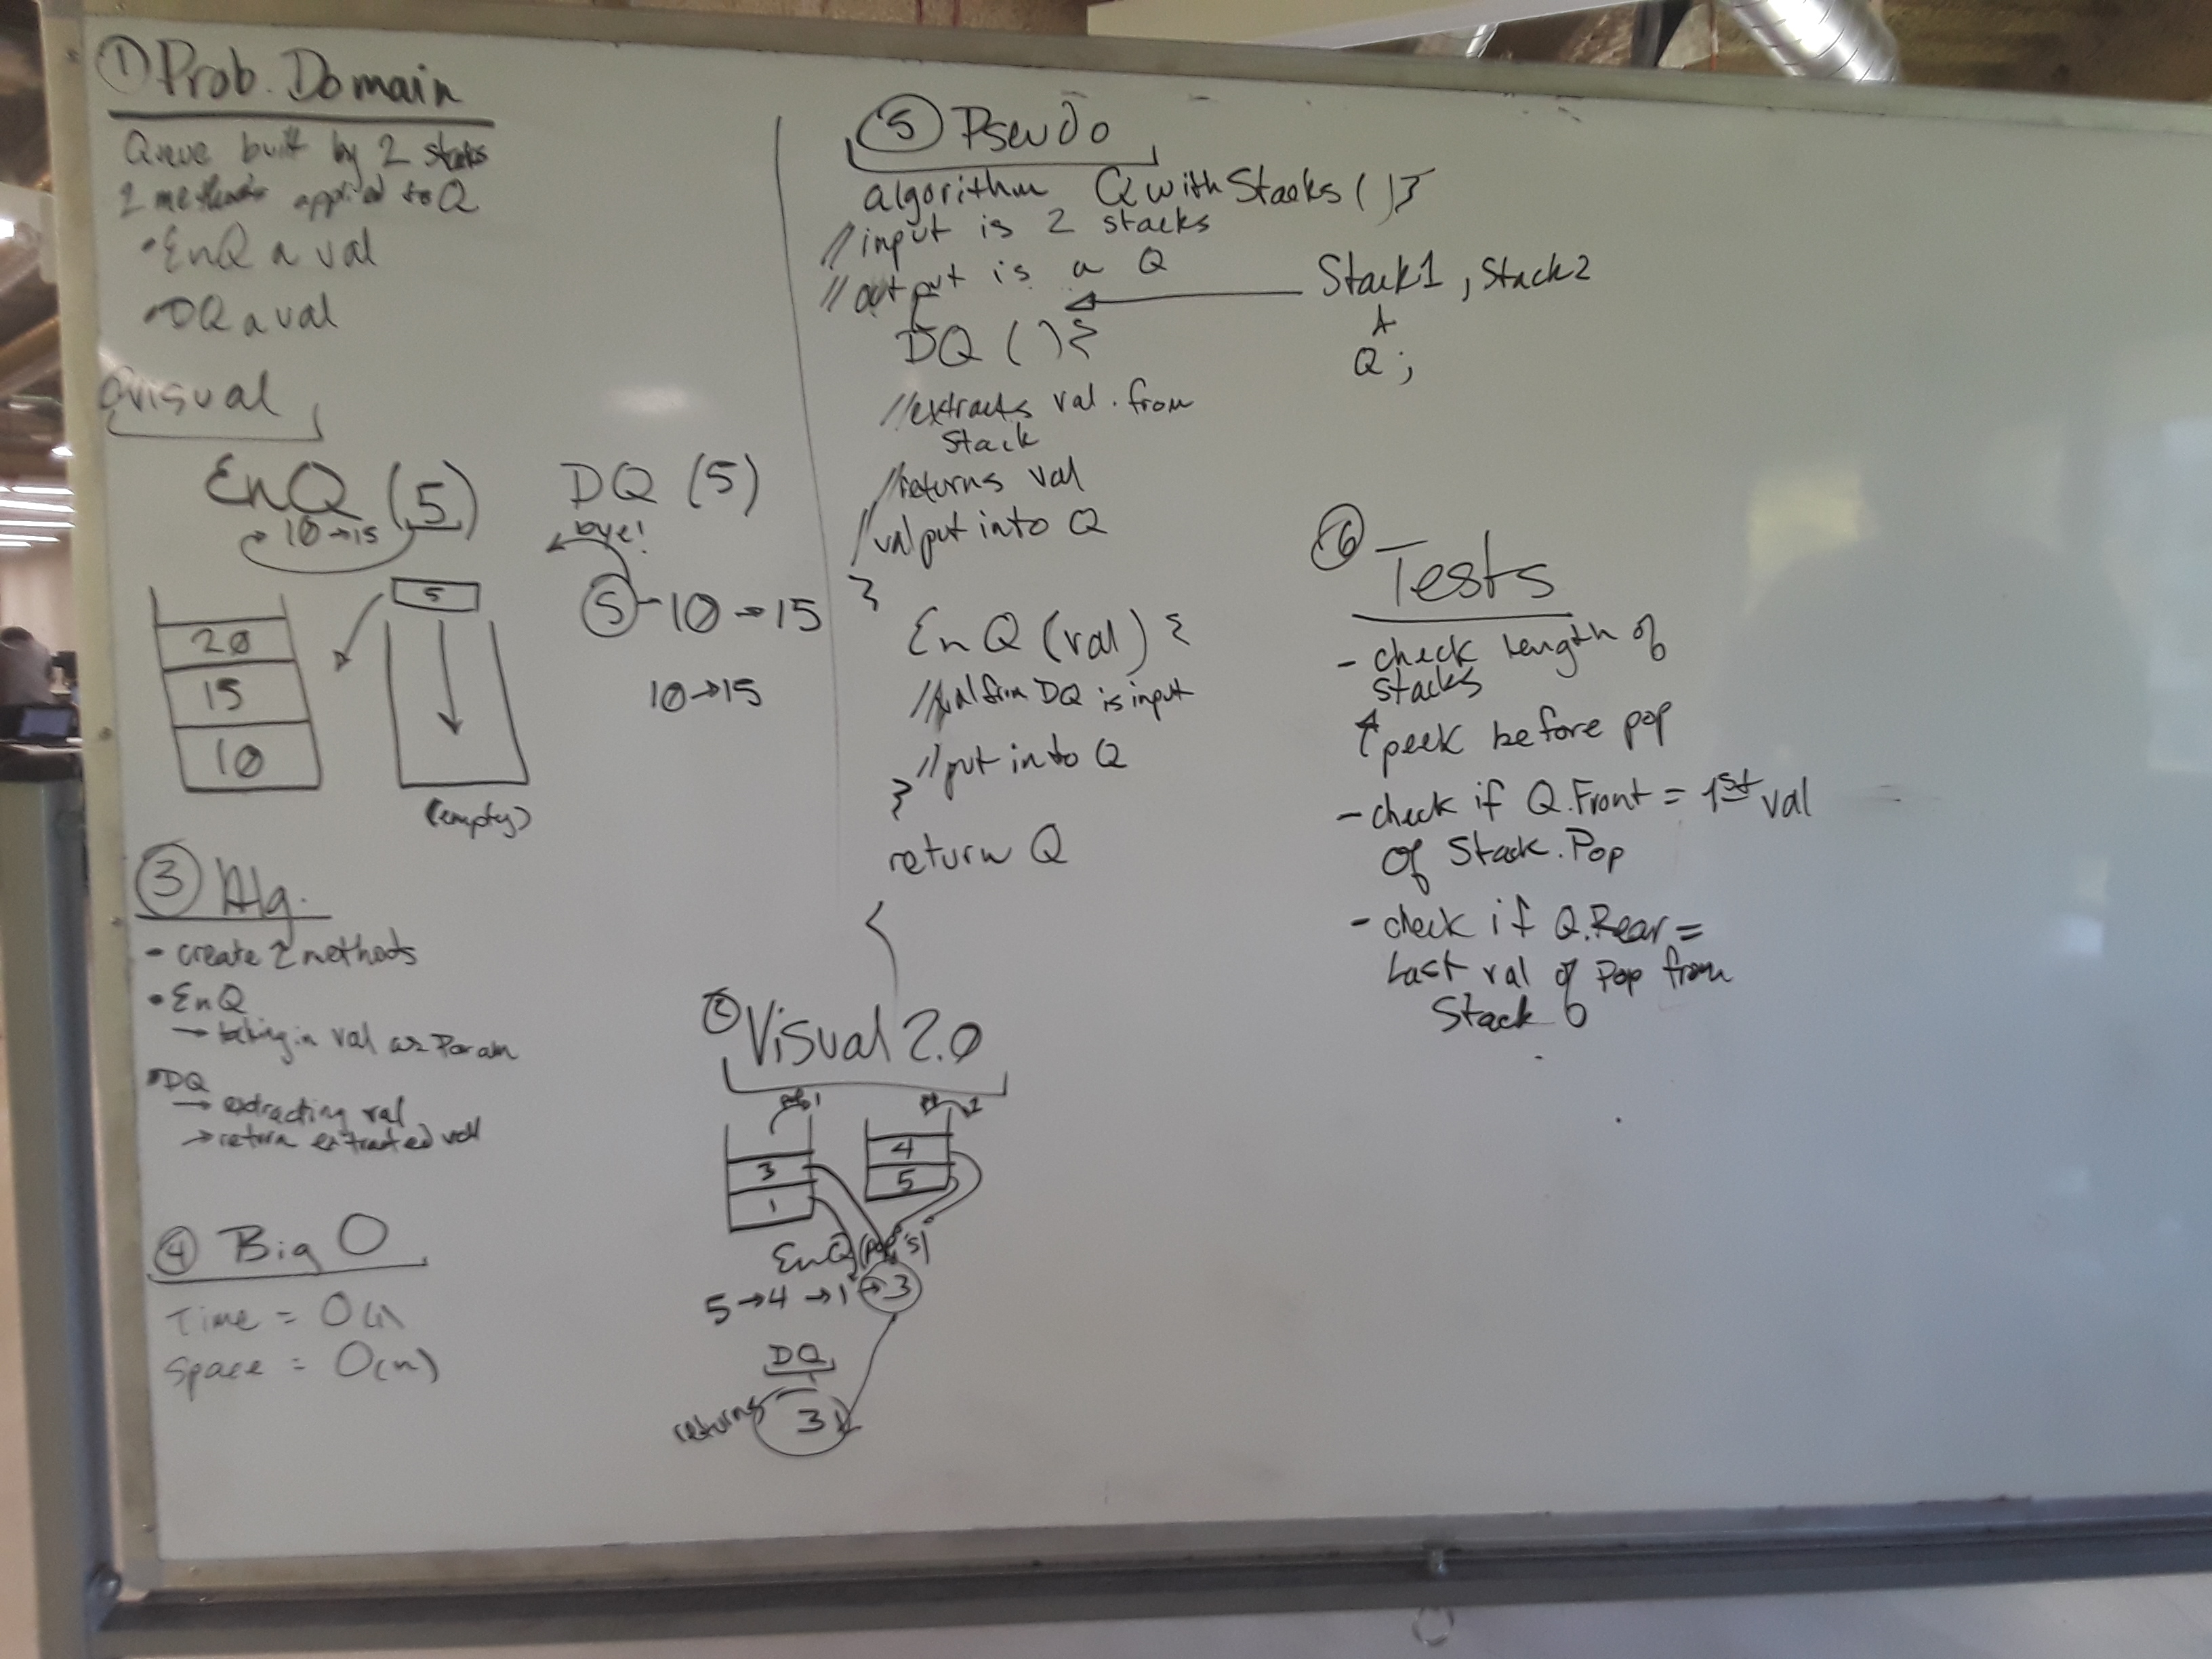 ① Prob. Domain
Queue built by 2 stacks
2 methods applied to Q
• EnQ a val
• DQ a val
② visual
EnQ (5)
10 → 15
5
20
15
10
(empty)
DQ (5)
bye!
5 → 10 → 15
10 → 15
③ Alg.
- create 2 methods
• EnQ
→ taking in val as Param
• DQ
→ extracting val
→ return extracted val
④ Big O
Time = O(1)
Space = O(n)
⑤ Pseudo
algorithm QwithStacks ( ) {
// input is 2 stacks
// output is a Q
Stack1 , Stack2
Q ;
DQ ( ) {
// extracts val. from
stack
// returns val
// val put into Q
}
EnQ (val) {
// val from DQ is input
// put into Q
}
return Q
② Visual 2.0
3
1
4
5
EnQ (pop's)
5 → 4 → 1 → 3
DQ
returns 3
⑥ Tests
- check length of
stacks
peek before pop
- check if Q.Front = 1st val
of Stack.Pop
- check if Q.Rear =
Last val of Pop from
Stack